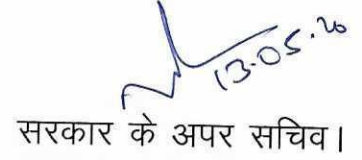 13.05.20
सरकार के अपर सचिव।